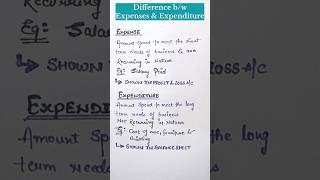 Difference b/w
Expenses & Expenditure
EXPENSE
Amount spend to meet the short
term needs of business & are
Recurring in Nature
Eg: Salary Paid
↳ SHOWN IN PROFIT & LOSS A/C
EXPENDITURE
Amount Spend to meet the long
term needs of business
Not Recurring in Nature
Eg: Cost of mac, furniture &
Building
↳ SHOWN IN BALANCE SHEET